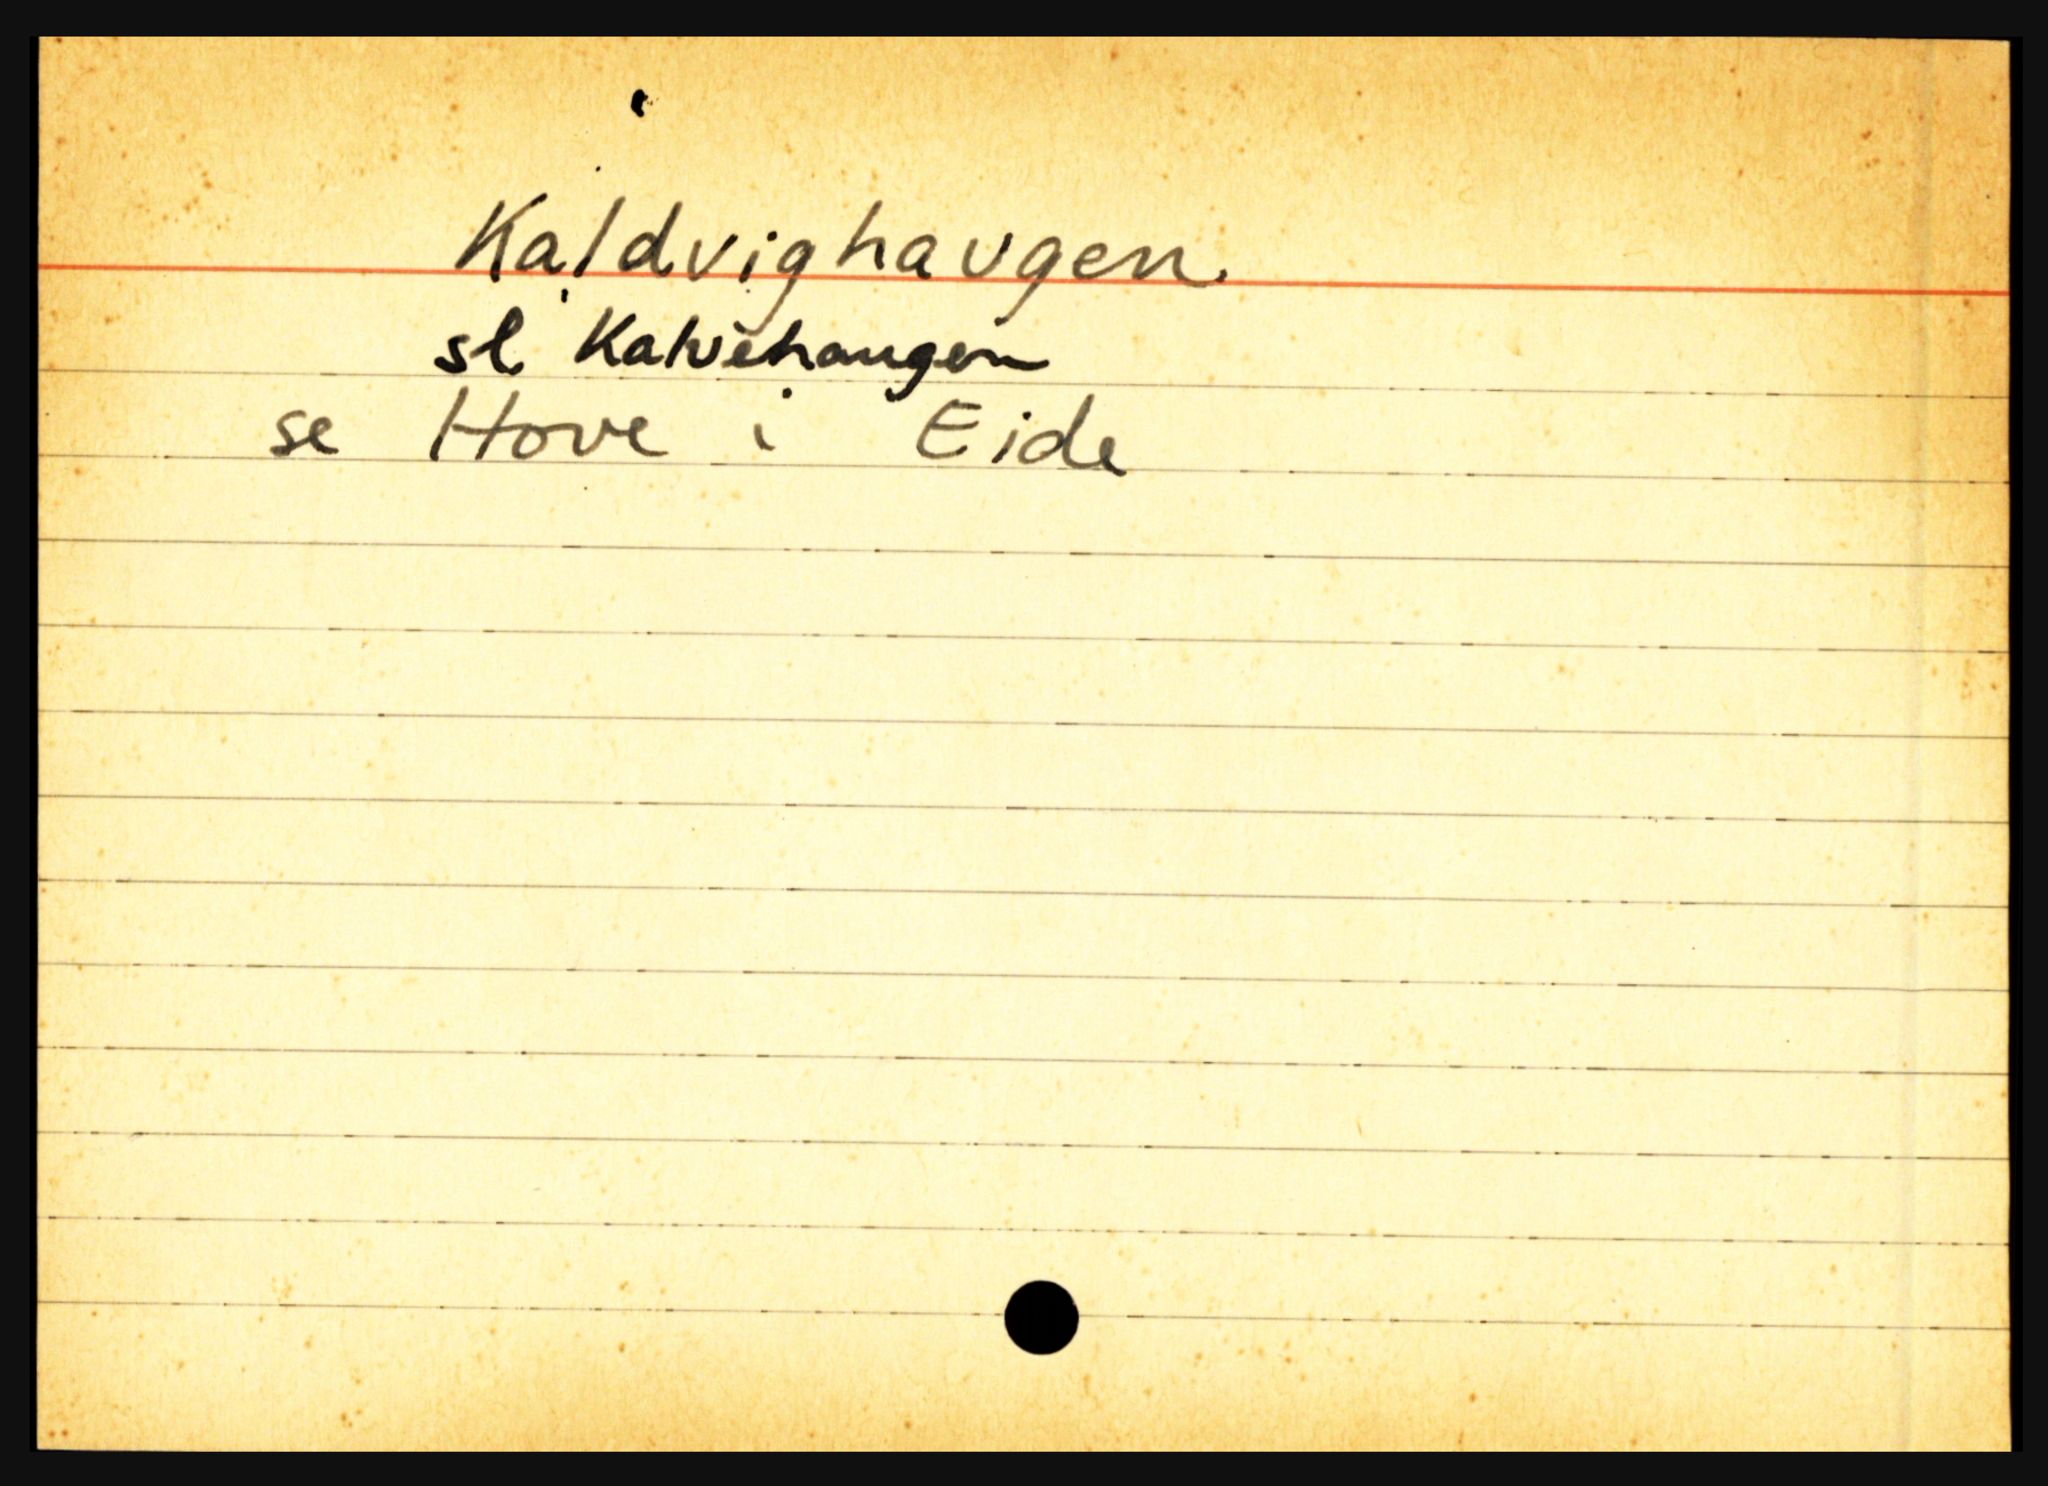 Kaldvighaugen.
sl. Kalvehaugen
se Hove i Eide